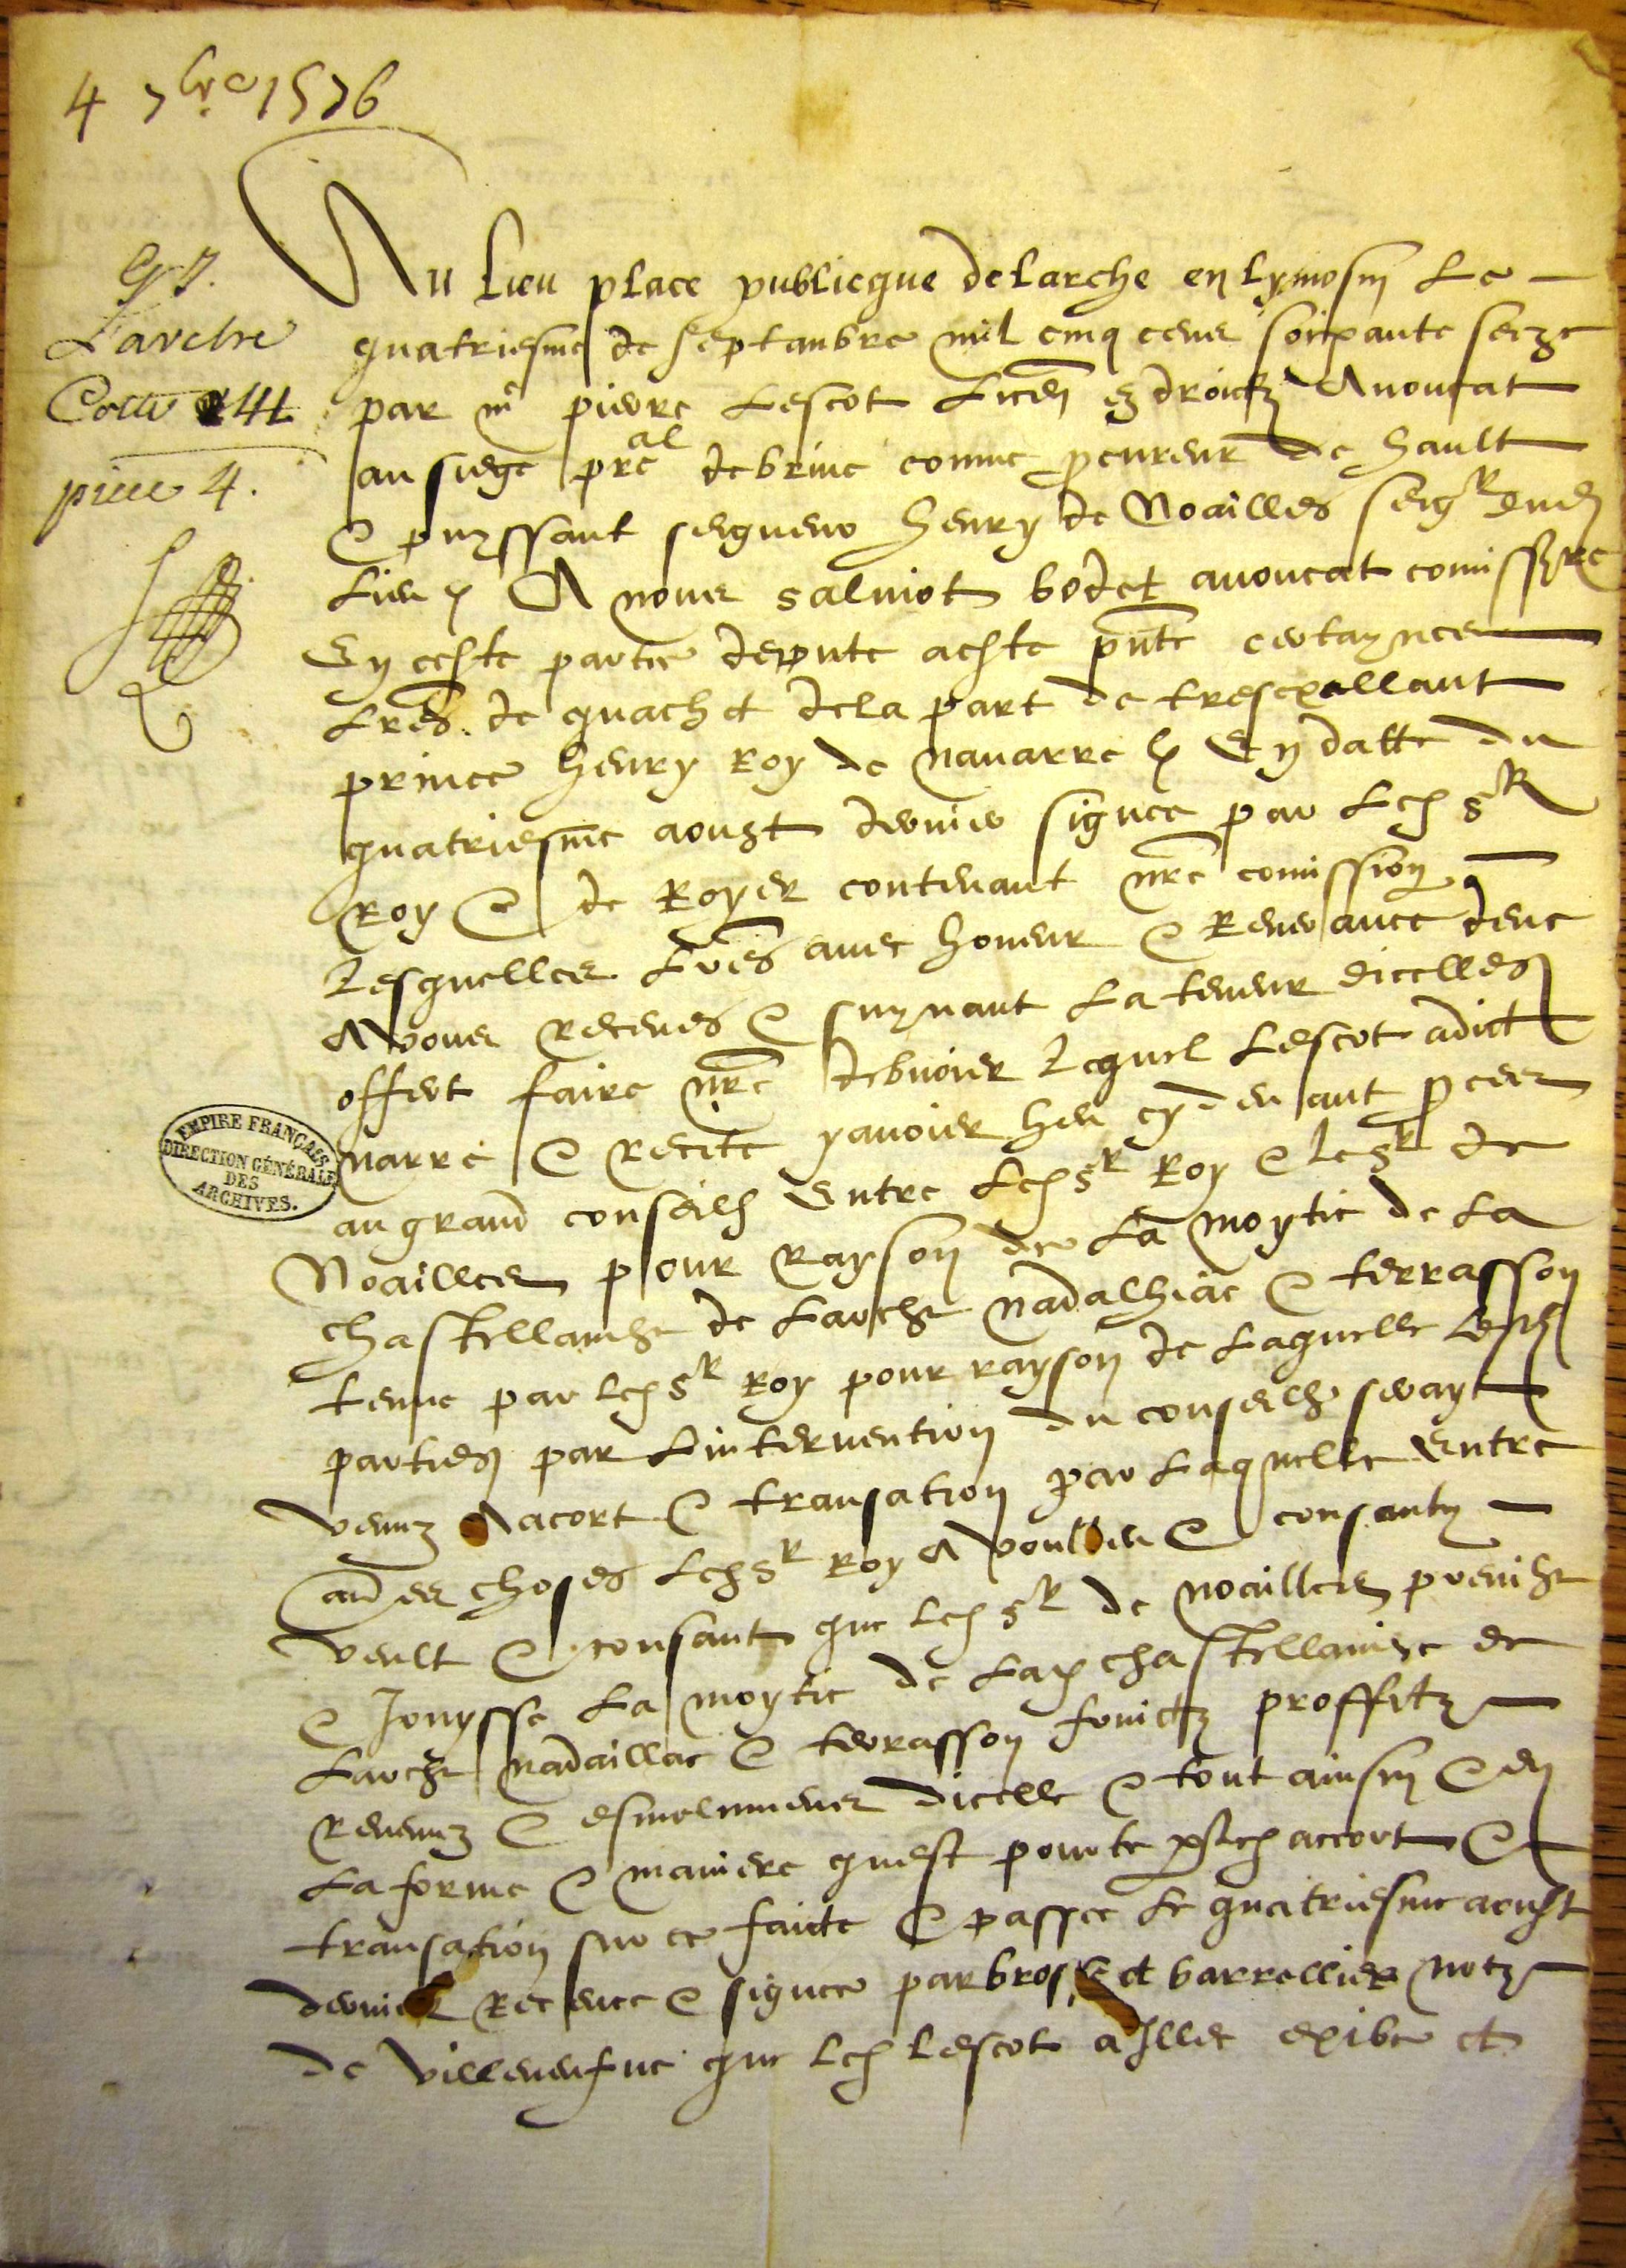 4 7bre 1576
Larche
Cotte 144
piece 4.
Au lieu place publicque de larche en lymosin Le
quatriesme de septanbre mil cinq cens soixante seize
par me pierre Lescot Licen ez droictz Avoucat
au siege preal de brive comme procureur de hault
& puyssant seigneur henry de Noailles seigr dud
lieu A nous salviot bodet avoucat comissyre
En ceste partie depute a este pnte certaynes
Lres de quachet de la part de tresexellant
prince henry Roy de navarre En datte du
quatriesme aoust dernier signee par Led sr
Roy & de Royer contenant nre comission
Lesquelles Lres avec honeur & Reverance deue
Avons receues & suyvant La teneur dicelles
offert faire nre debvoier Lequel Lescot a dict
narre & recite y avoier heu cy devant proces
au grand conseilh Entre Led sr Roy & le sr de
Noailles pour rayson de La moytie de La
chastellanihe de Larche nadalhiac & terrasson
tenue par led sr Roy pour rayson de Laquelle Lesd
parties par Lintervention du conseilh serayt
venuz A acort & transation par Laquelle Entre
aues choses Led sr Roy A voulleu & consanty
veult & consant que led sr de noailles prenihe
& Jouysse La moytie de Lad chastellanie de
Larche nadaillac & terrasson fruictz proffitz
Revenuz & esmolumens dicelle & tout ainsin & En
La forme & maniere quest pourte p led accort &
transation sur ce faicte & passee Le quatriesme aoust
dernier Receue & signee par brosse et barrellier notz
de villeneufve que led Lescot a Illec exibe et
EMPIRE FRANÇAIS
DIRECTION GÉNÉRALE
DES
ARCHIVES.